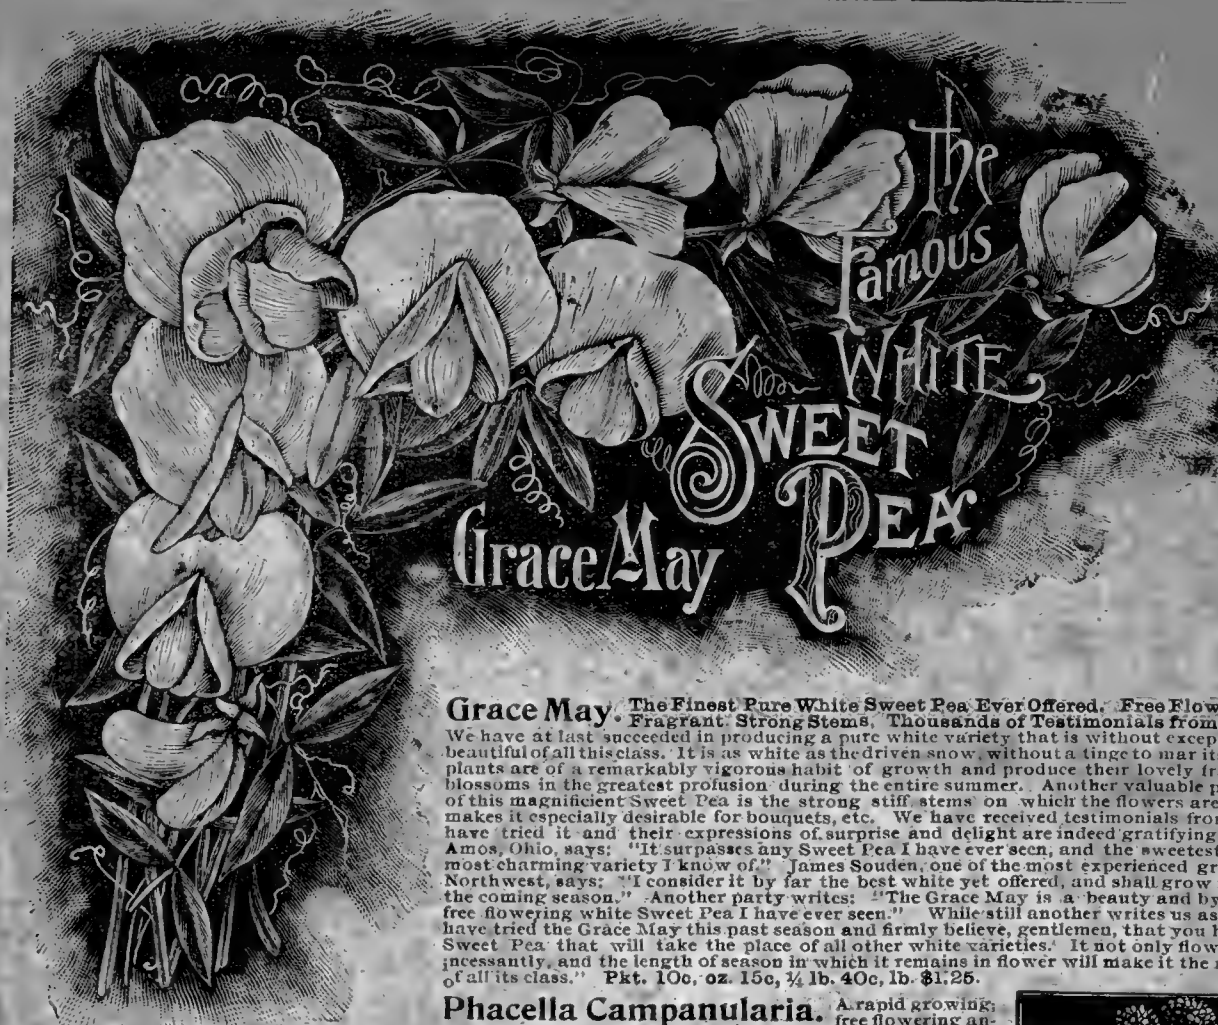 The
Famous
WHITE
SWEET
PEA
Grace May
Grace May. The Finest Pure White Sweet Pea Ever Offered. Free Flow
Fragrant. Strong Stems, Thousands of Testimonials from
We have at last succeeded in producing a pure white variety that is without excep
beautiful of all this class. It is as white as the driven snow, without a tinge to mar it
plants are of a remarkably vigorous habit of growth and produce their lovely fr
blossoms in the greatest profusion during the entire summer. Another valuable p
of this magnificient Sweet Pea is the strong stiff stems on which the flowers are
makes it especially desirable for bouquets, etc. We have received testimonials fro
have tried it and their expressions of surprise and delight are indeed gratifying
Amos, Ohio, says: "It surpasses any Sweet Pea I have ever seen, and the sweetest
most charming variety I know of." James Souden, one of the most experienced gr
Northwest, says: "I consider it by far the best white yet offered, and shall grow
the coming season." Another party writes: "The Grace May is a beauty and by
free flowering white Sweet Pea I have ever seen." While still another writes us as
have tried the Grace May this past season and firmly believe, gentlemen, that you h
Sweet Pea that will take the place of all other white varieties. It not only flow
incessantly, and the length of season in which it remains in flower will make it the
of all its class." Pkt. 10c, oz. 15c, ¼ lb. 40c, lb. $1.25.
Phacella Campanularia. A rapid growing,
free flowering an-